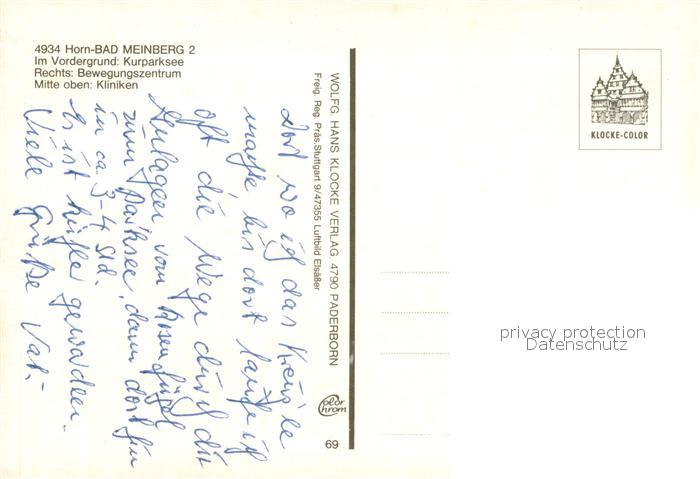 4934 Horn-BAD MEINBERG 2
Im Vordergrund: Kurparksee
Rechts: Bewegungszentrum
Mitte oben: Kliniken
Dort wo ich das Kreuzle
mache bis dort laufe ich
oft die Wege durch die
Anlagen vom Rosenhügel
zum Parksee, dann dorthin
in ca. 3-4 Std.
Es ist kühler geworden.
Viele Grüße Vati
WOLFG. HANS KLOCKE VERLAG, 4790 PADERBORN
Freig. Reg. Präs. Stuttgart 9/47355 Luftbild Elsäßer
color
chrom
69
KLOCKE-COLOR
privacy protection
Datenschutz